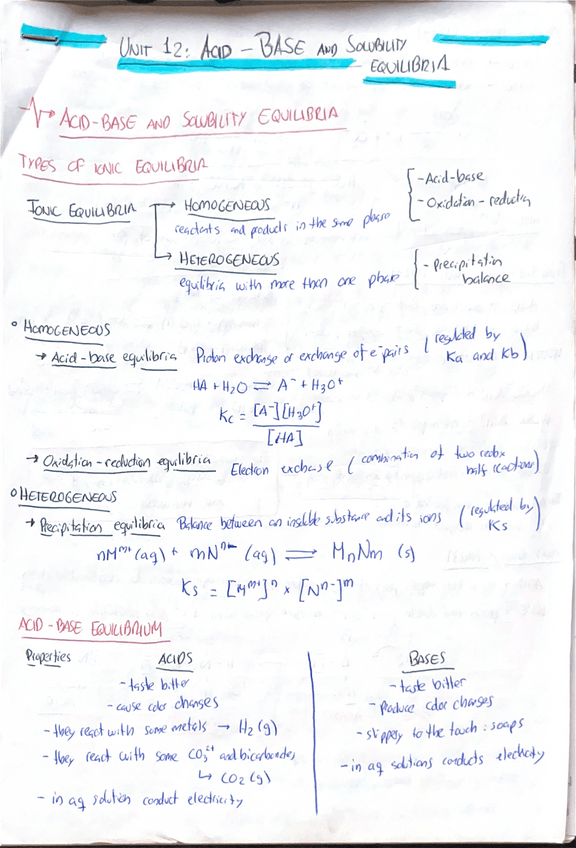 UNIT 12: ACID - BASE AND SOLUBILITY
EQUILIBRIA
ACID-BASE AND SOLUBILITY EQUILIBRIA
TYPES OF IONIC EQUILIBRIA
IONIC EQUILIBRIA → HOMOGENEOUS
reactants and products in the same phase
- Acid-base
- Oxidation - reduction
→ HETEROGENEOUS
equilibria with more than one phase
- Precipitation
balance
° HOMOGENEOUS
→ Acid-base equilibria Proton exchange or exchange of e⁻ pairs (regulated by
Ka and Kb)
HA + H₂O ⇌ A⁻ + H₃O⁺
Kc = [A⁻][H₃O⁺]
[HA]
→ Oxidation-reduction equilibria Electron exchange (combination of two redox
half reactions)
° HETEROGENEOUS
→ Precipitation equilibria Balance between an insoluble substance and its ions (regulated by
Ks)
nMᵐ⁺ (aq) + mNⁿ⁻ (aq) ⇌ MnNm (s)
Ks = [Mᵐ⁺]ⁿ × [Nⁿ⁻]ᵐ
ACID-BASE EQUILIBRIUM
Properties
ACIDS
- taste bitter
- cause color changes
- they react with some metals → H₂ (g)
- they react with some CO₃ and bicarbonates
↳ CO₂ (g)
- in aq solution conduct electricity
BASES
- taste bitter
- Produce color changes
- slippery to the touch: soaps
- in aq solutions conducts electricity